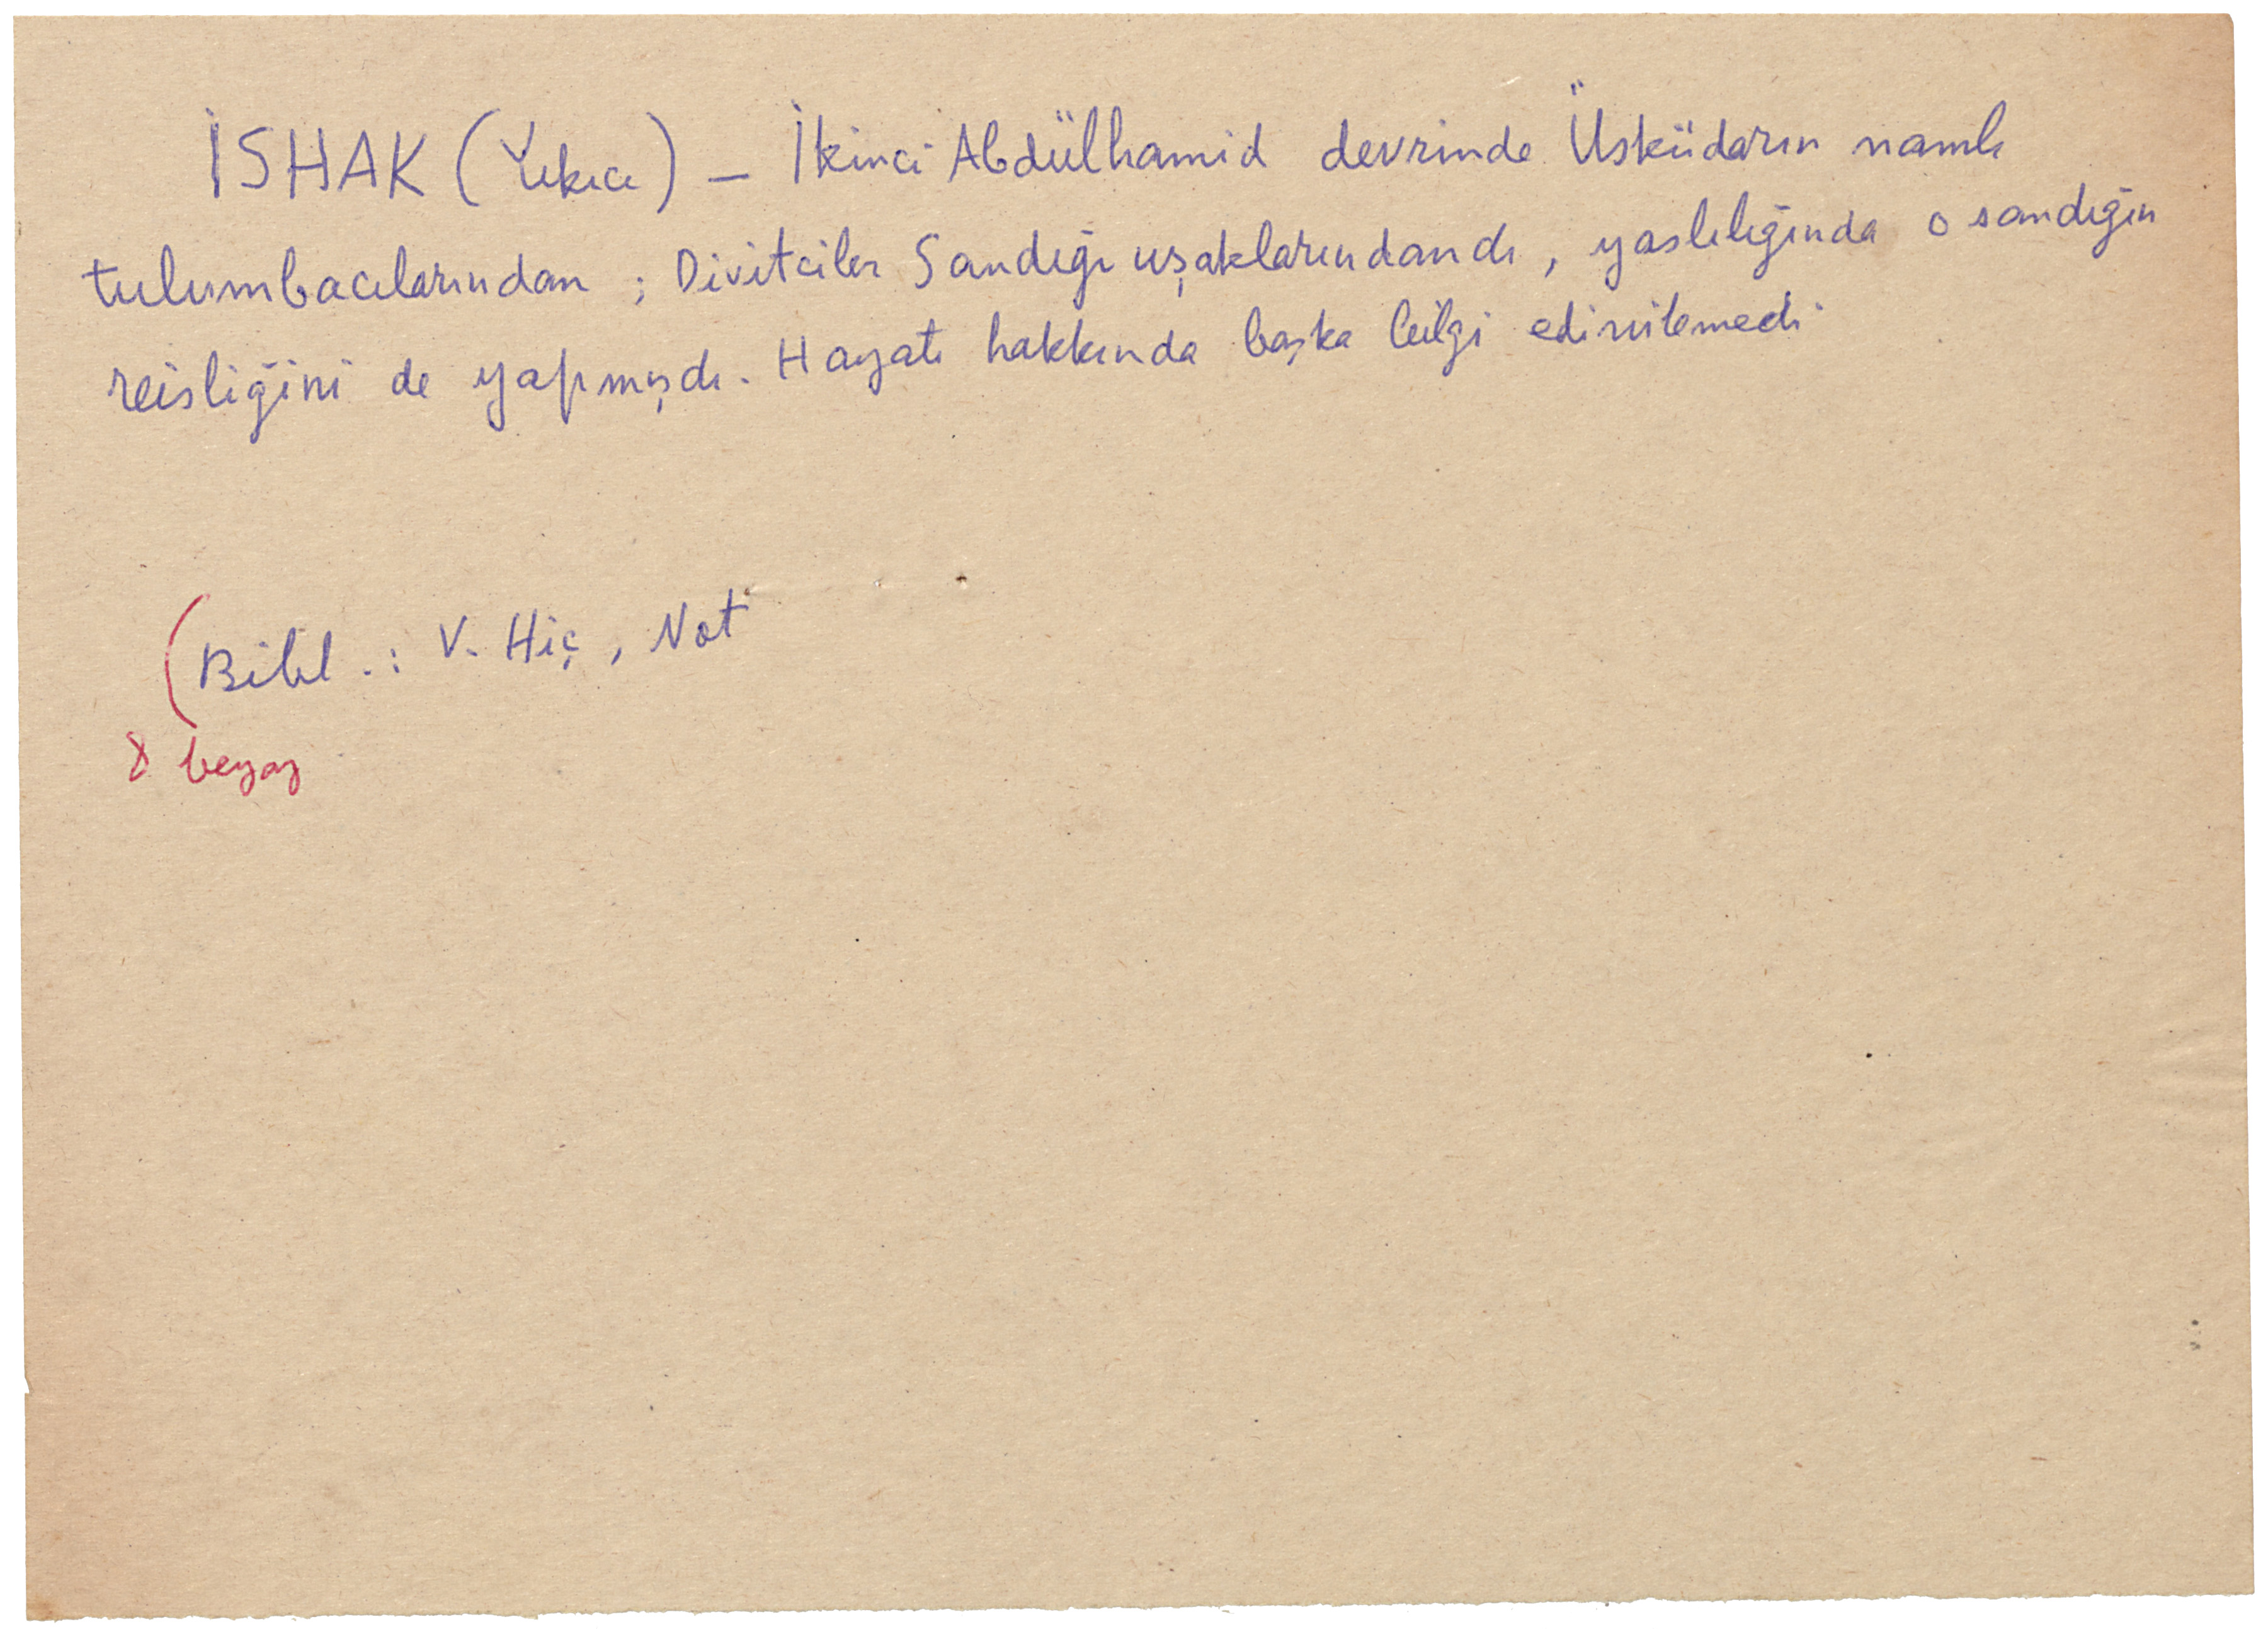 İSHAK (Yıkıcı) — İkinci Abdülhamid devrinde Üsküdarın namlı
tulumbacılarından ; Divitciler Sandığı uşaklarındandı , yaşlılığında o sandığın
reisliğini de yapmışdı . Hayatı hakkında başka bilgi edinilemedi
(Bibl . : V. Hiç , Not
8 beyaz